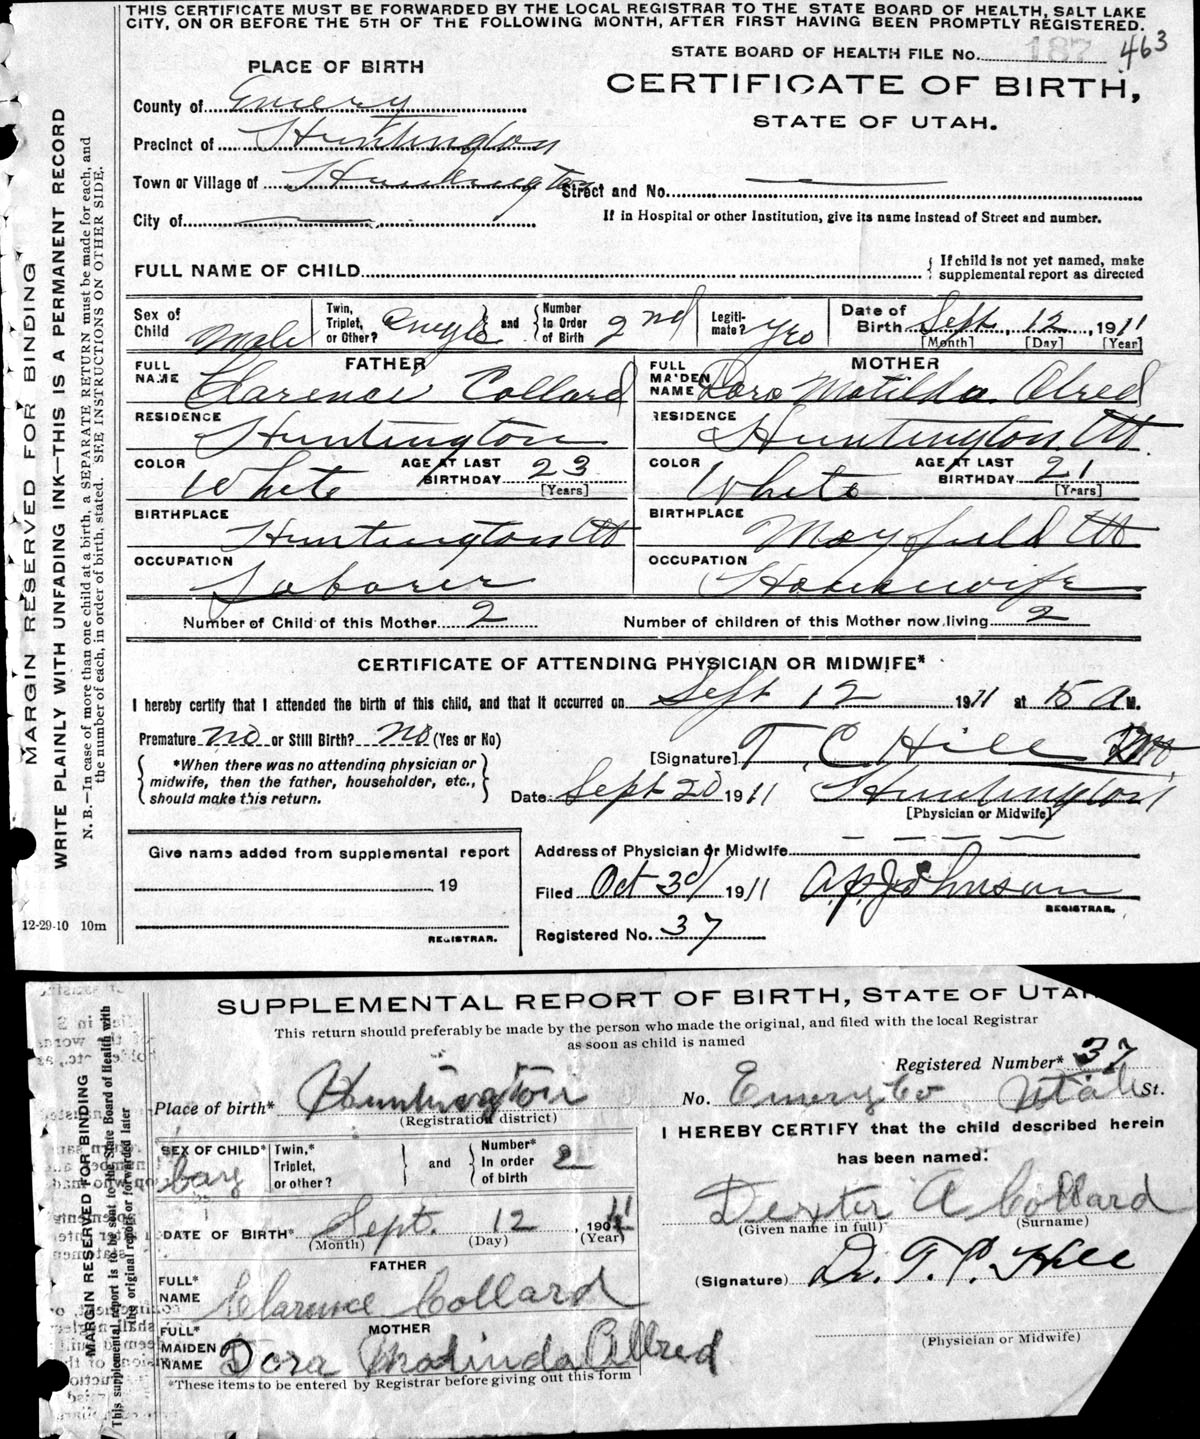 THIS CERTIFICATE MUST BE FORWARDED BY THE LOCAL REGISTRAR TO THE STATE BOARD OF HEALTH, SALT LAKE
CITY, ON OR BEFORE THE 5TH OF THE FOLLOWING MONTH, AFTER FIRST HAVING BEEN PROMPTLY REGISTERED.
STATE BOARD OF HEALTH FILE No. 187 463
PLACE OF BIRTH
CERTIFICATE OF BIRTH,
STATE OF UTAH.
County of Emery
Precinct of Huntington
Town or Village of Huntington Street and No.
City of
If in Hospital or other Institution, give its name instead of Street and number.
FULL NAME OF CHILD
If child is not yet named, make
supplemental report as directed
Sex of Child Male
Twin, Triplet, or Other? Single and Number In Order of Birth 2nd
Legitimate? Yes
Date of Birth Sept 12, 1911
[Month] [Day] [Year]
FATHER
FULL NAME Clarence Collard
MOTHER
FULL MAIDEN NAME Dora Matilda Alred
RESIDENCE Huntington
RESIDENCE Huntington Ut
COLOR White AGE AT LAST BIRTHDAY 23 [Years]
COLOR White AGE AT LAST BIRTHDAY 21 [Years]
BIRTHPLACE Huntington Ut
BIRTHPLACE Mayfield Ut
OCCUPATION Laborer
OCCUPATION Housewife
Number of Child of this Mother 2 Number of children of this Mother now living 2
CERTIFICATE OF ATTENDING PHYSICIAN OR MIDWIFE*
I hereby certify that I attended the birth of this child, and that it occurred on Sept 12 1911 at A M.
Premature no or Still Birth? no (Yes or No)
*When there was no attending physician or
midwife, then the father, householder, etc.,
should make this return.
[Signature] T. C. Hill
Date Sept 20 1911 Huntington
[Physician or Midwife]
Give name added from supplemental report
19
REGISTRAR.
Address of Physician or Midwife
Filed Oct 3d 1911 A.P. Johnson
REGISTRAR.
Registered No. 37
MARGIN RESERVED FOR BINDING
WRITE PLAINLY WITH UNFADING INK—THIS IS A PERMANENT RECORD
N. B.—In case of more than one child at a birth, a SEPARATE RETURN must be made for each, and
the number of each, in order of birth, stated. SEE INSTRUCTIONS ON OTHER SIDE.
12-29-10 10m
SUPPLEMENTAL REPORT OF BIRTH, STATE OF UTAH
This return should preferably be made by the person who made the original, and filed with the local Registrar
as soon as child is named
Registered Number* 37
Place of birth* Huntington No. Emery Co Utah St.
(Registration district)
I HEREBY CERTIFY that the child described herein
has been named:
SEX OF CHILD* boy
Twin,* Triplet, or other? and Number* In order of birth 2
Dexter A Collard
(Given name in full) (Surname)
DATE OF BIRTH* Sept. 12, 1911
(Month) (Day) (Year)
(Signature) Dr. T. C. Hill
(Physician or Midwife)
FATHER
FULL* NAME Clarence Collard
MOTHER
FULL* MAIDEN NAME Dora Malinda Allred
*These items to be entered by Registrar before giving out this form
MARGIN RESERVED FOR BINDING
This supplemental report is to be sent to the State Board of Health with
the original report or forwarded later